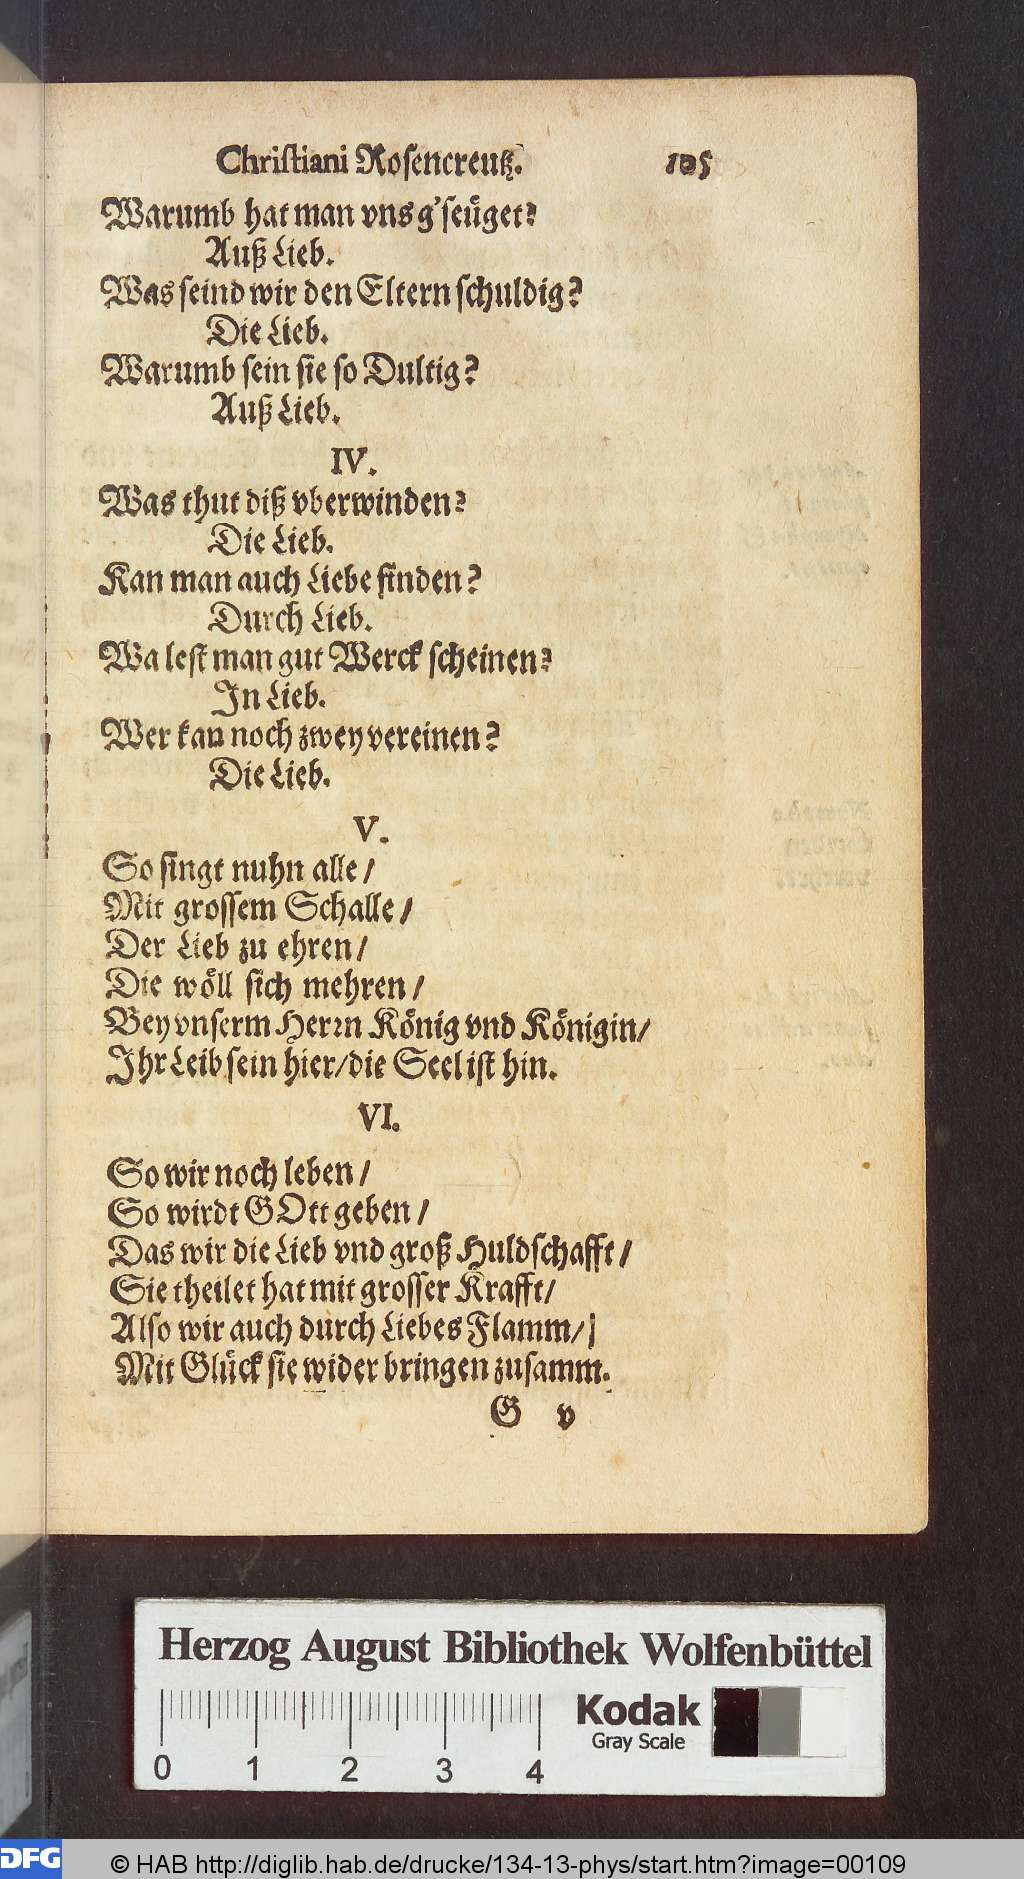 Chriſtiani Roſencreutz. 105
Warumb hat man vns g'ſeüget?
Auß Lieb.
Was ſeind wir den Eltern ſchuldig?
Die Lieb.
Warumb ſein ſie ſo Dultig?
Auß Lieb.
IV.
Was thut diß vberwinden?
Die Lieb.
Kan man auch Liebe finden?
Durch Lieb.
Wa leſt man gut Werck ſcheinen?
In Lieb.
Wer kan noch zwey vereinen?
Die Lieb.
V.
So ſingt nuhn alle/
Mit groſſem Schalle/
Der Lieb zu ehren/
Die wöll ſich mehren/
Bey vnſerm Herꝛn König vnd Königin/
Ihr Leib ſein hier/die Seel iſt hin.
VI.
So wir noch leben/
So wirdt GOtt geben/
Das wir die Lieb vnd groß Huldſchafft/
Sie theilet hat mit groſſer Krafft/
Alſo wir auch durch Liebes Flamm/
Mit Glück ſie wider bringen zuſamm.
G v
Herzog August Bibliothek Wolfenbüttel
Kodak
Gray Scale
0 1 2 3 4
DFG © HAB http://diglib.hab.de/drucke/134-13-phys/start.htm?image=00109